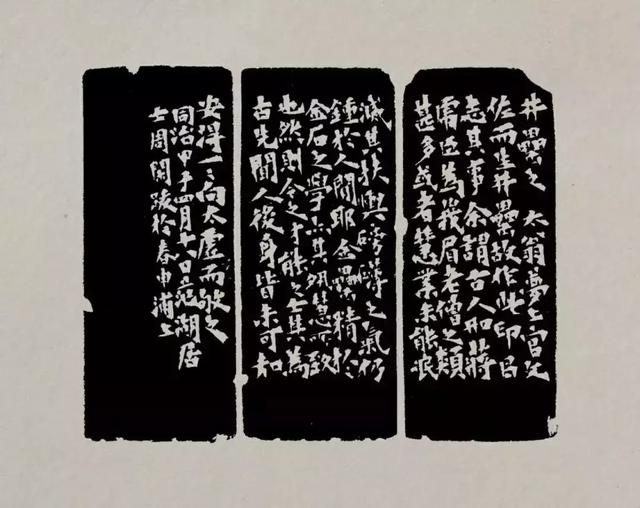 井罍之大翁夢上官氏
佐而生井罍故作此印㠯
志其事余謂古人如蔣
虎臣為峩眉老僧之類
甚多或者慧業未能泯
滅其扶輿磅礴之氣仍
鍾於人間耶金罍精於
金石之學亦其夙慧所致
也然則今之才能之士其為
古先聞人後身皆未可知
安得一一向太虛而敬之
同治甲子四月十六日范湖居
士周閑跋於春申浦上